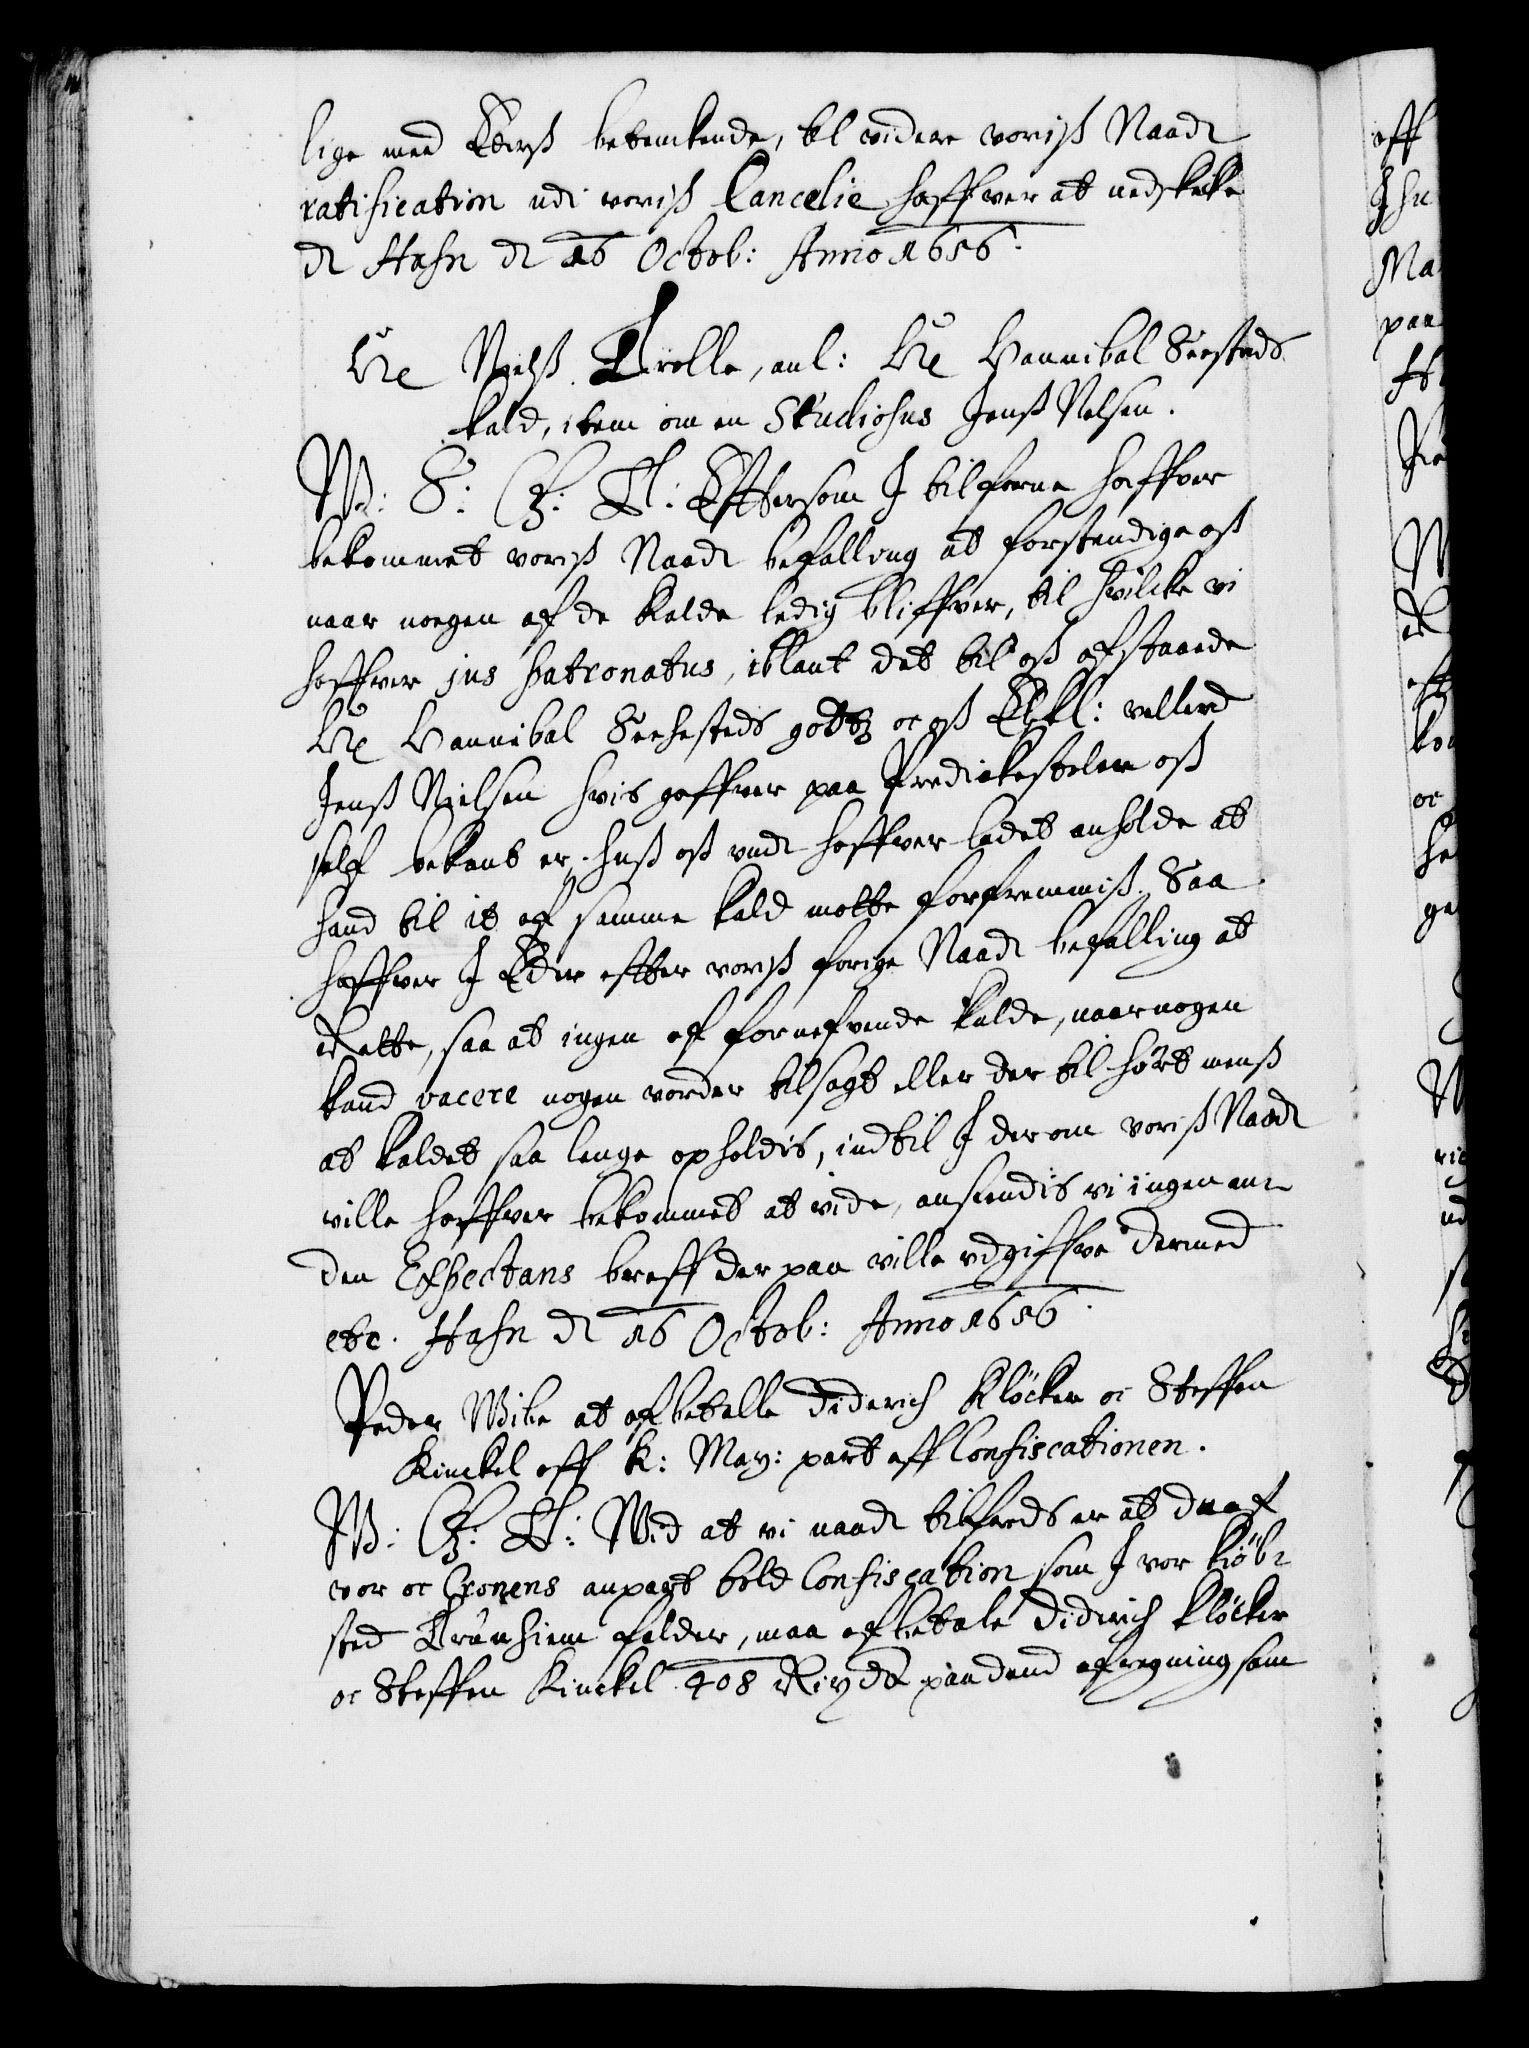 lige med Eders betenkende, til videre voris Naadl
ratification udi voris Cancelie haffver at nedskicke
dl Hafn dl 16 Octob: Anno 1656.
Hr Nielß Trolle, anl: Hr Hannibal Seesteds
kald, item om en Studiosus Jenß Nelsen.
W: S: G: T: Effttersom I tilforne haffver
bekommet voriß Naadl befalling at forstendige oß
naar nogen af de kalde ledig bliffver, til hvilcke vi
haffver jus patronatus, iblant det til oß afstaaede
Hr Hannibal Seehesteds gotz oc oß Elskl: vellerd
Jenß Nielsen hvis gaffver paa Predickestolen oß
self bekant er, hoß oß undl haffver ladet anholde at
hand til it af samme kald motte forfremmiß. Saa
haffver I Eder effter voriß forige Naadl befalling at
Rette, saa at ingen af fornefvende kalde, naar nogen
kand vacere nogen vorder tilsagt eller der til hørt menß
at kaldet saa lenge opholdis, indtil I der om voriß Naadl
ville haffver bekommet at vide, anseendis vi ingen an-
den Expectans breff der paa ville udgiffve dermed
etc. Hafn dl 16 Octob: Anno 1656.
Peder Wibe at afbetalle Diderich Klöcker oc Steffen
Kinckel aff K: May: part aff Confiscationen.
W: G: T: Wid at vi naadl tilfreds er at du af
vor oc Cronens anpart told Confiscation som I vor kiöb-
sted Trundhiem falder, maa afbetale Diderich Klöcker
oc Steffen Kinckel 408 Rixdlr paa dend afregning som